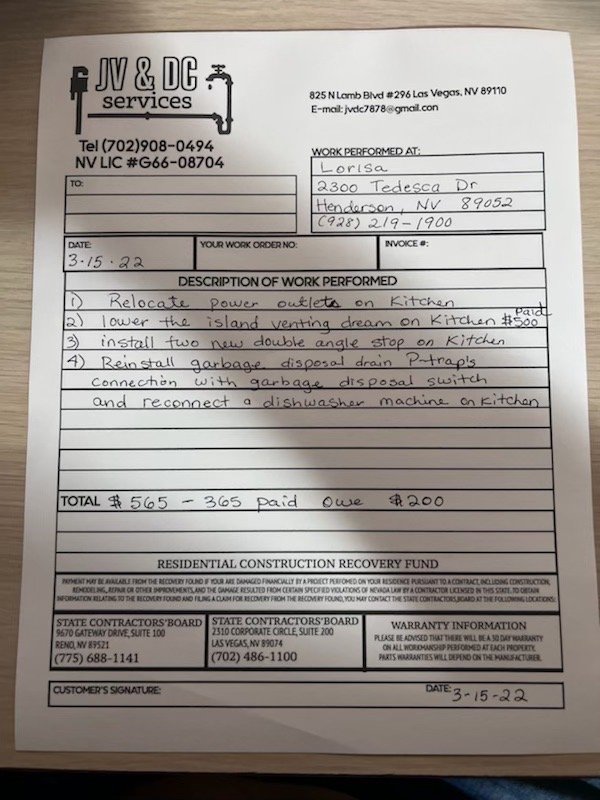 JV & DC
services
Tel (702)908-0494
NV LIC #G66-08704
825 N Lamb Blvd #296 Las Vegas, NV 89110
E-mail: jvdc7878@gmail.con
TO:
WORK PERFORMED AT:
Lorisa
2300 Tedesca Dr
Henderson, NV 89052
(928) 219-1900
DATE:
3.15.22
YOUR WORK ORDER NO:
INVOICE #:
DESCRIPTION OF WORK PERFORMED
1) Relocate power outlets on Kitchen
2) lower the island venting dream on Kitchen $500 Paid
3) install two new double angle stop on Kitchen
4) Reinstall garbage disposal drain P-trap's
connection with garbage disposal switch
and reconnect a dishwasher machine on Kitchen
TOTAL $565 - 365 paid owe $200
RESIDENTIAL CONSTRUCTION RECOVERY FUND
PAYMENT MAY BE AVAILABLE FROM THE RECOVERY FOUND IF YOUR ARE DAMAGED FINANCIALLY BY A PROJECT PERFOMED ON YOUR RESIDENCE PURSUANT TO A CONTRACT, INCLUDING CONSTRUCTION,
REMODELING, REPAIR OR OTHER IMPROVEMENTS, AND THE DAMAGE RESULTED FROM CERTAIN SPECIFIED VIOLATIONS OF NEVADA LAW BY A CONTRACTOR LICENSED IN THIS STATE. TO OBTAIN
INFORMATION RELATING TO THE RECOVERY FOUND AND FILING A CLAIM FOR RECOVERY FROM THE RECOVERY FOUND, YOU MAY CONTACT THE STATE CONTRACTORS,BOARD AT THE FOLLOWING LOCATIONS:
STATE CONTRACTORS'BOARD
9670 GATEWAY DRIVE, SUITE 100
RENO, NV 89521
(775) 688-1141
STATE CONTRACTORS'BOARD
2310 CORPORATE CIRCLE, SUITE 200
LAS VEGAS, NV 89074
(702) 486-1100
WARRANTY INFORMATION
PLEASE BE ADVISED THAT THERE WILL BE A 30 DAY WARRANTY
ON ALL WORKMANSHIP PERFORMED AT EACH PROPERTY.
PARTS WARRANTIES WILL DEPEND ON THE MANUFACTURER.
CUSTOMER'S SIGNATURE:
DATE: 3-15-22